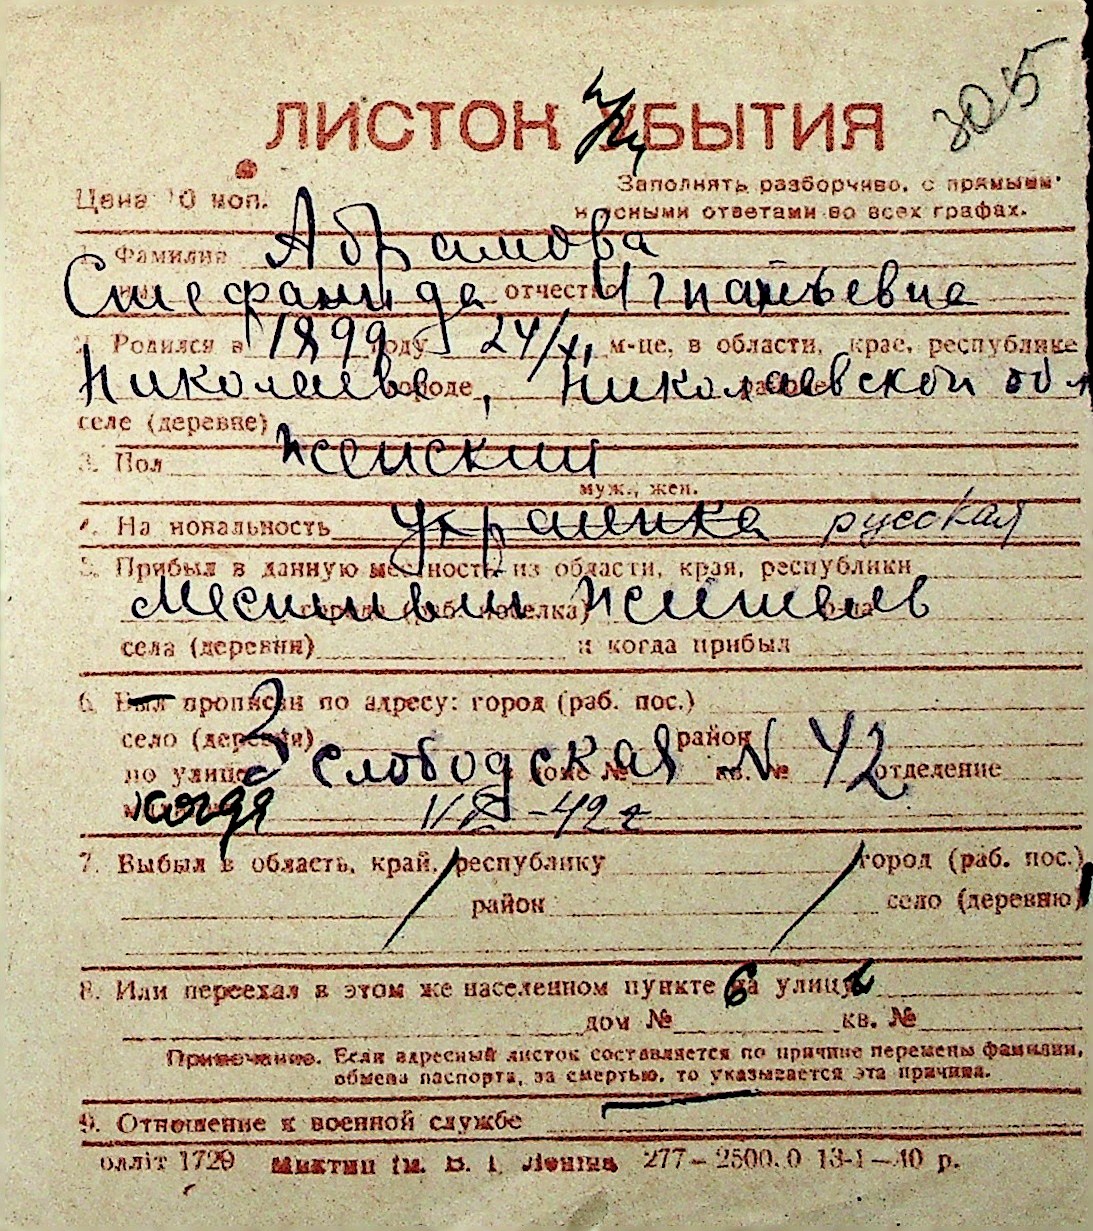 305
ЛИСТОК УБЫТИЯ
Цена 10 коп.
Заполнять разборчиво, с прямыми
и ясными ответами во всех графах.
1. Фамилия Абрамова
Стефанида отчество Игнатьевна
2. Родился в 1899 году 24/X м-це, в области, крае, республике
Николаеве городе, Николаевской обл
селе (деревне)
3. Пол женский
муж., жен.
4. Национальность украинка русская
5. Прибыл в данную местность из области, края, республики
Местный города (раб. поселка) житель р-на
села (деревни) и когда прибыл
6. Был прописан по адресу: город (раб. пос.)
село (деревня) район
по улице 3 слободская в доме № кв. № N 42 отделение
когда
7. Выбыл в область, край, республику город (раб. пос.)
район село (деревню)
8. Или переехал в этом же населенном пункте на улицу
дом № кв. №
Примечание. Если адресный листок составляется по причине перемены фамилии,
обмена паспорта, за смертью, то указывается эта причина.
9. Отношение к военной службе
олліт 1729 Миктип ім. В. І. Леніна 277–2500.0 13-1–40 р.